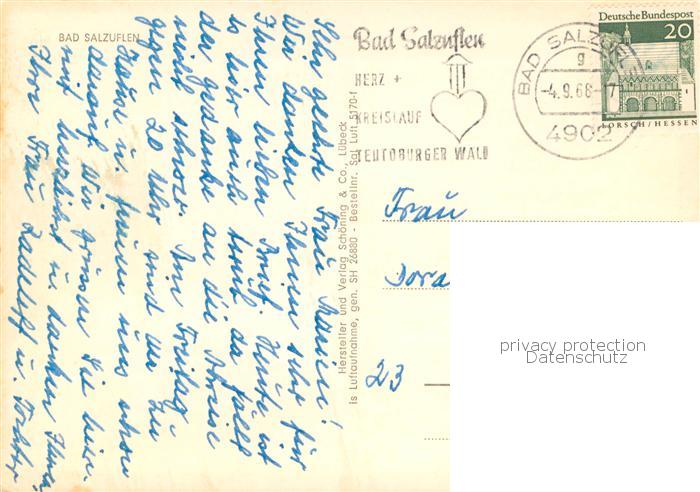 BAD SALZUFLEN
Sehr geehrte Frau Marien!
Wir danken Ihnen sehr für
Ihren lieben Brief. Heute ist
es hier auch trüb, da fällt
der Gedanke an die Abreise
nicht schwer. Am Freitag
gegen 20 Uhr sind wir zu
Hause u. freuen uns schon
darauf. Wir grüssen Sie hier-
mit herzlichst u. danken Ihnen
Ihre Frau Radeloff u. Tochter
Hersteller und Verlag Schöning & Co., Lübeck
is Luftaufnahme, gen. SH 26880 - Bestellnr. Sal Luft 5170-f
Bad Salzuflen
HERZ +
KREISLAUF
TEUTOBURGER WALD
BAD SALZUFL
g
-4.9.68
17
4902
Deutsche Bundespost
20
LORSCH/HESSEN
Frau
Dora
23
privacy protection
Datenschutz